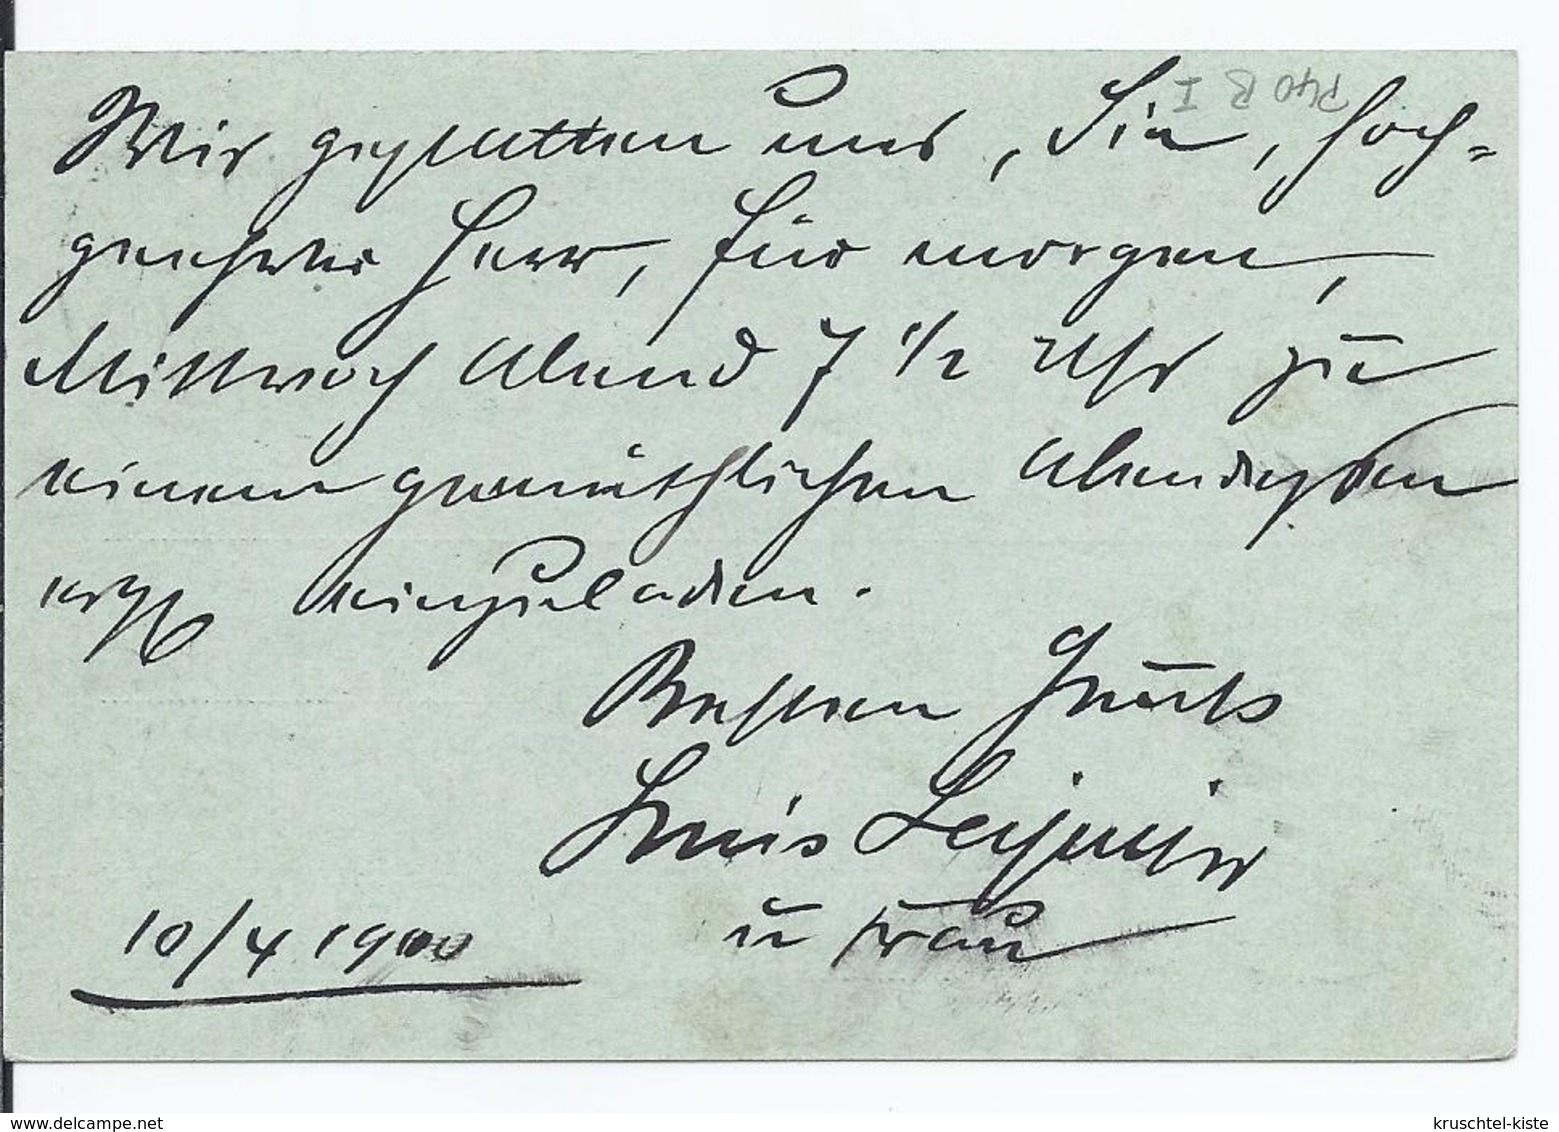 P40 B I
Wir gestatten uns, Sie, hoch-
geehrter Herr, für morgen,
Mittwoch Abend 7 1/2 Uhr zu
einem gemüthlichen Abendessen
erg. einzuladen.
Besten Gruß
Louis
u Frau
10/4 1900
www.delcampe.net
kruschtel-kiste